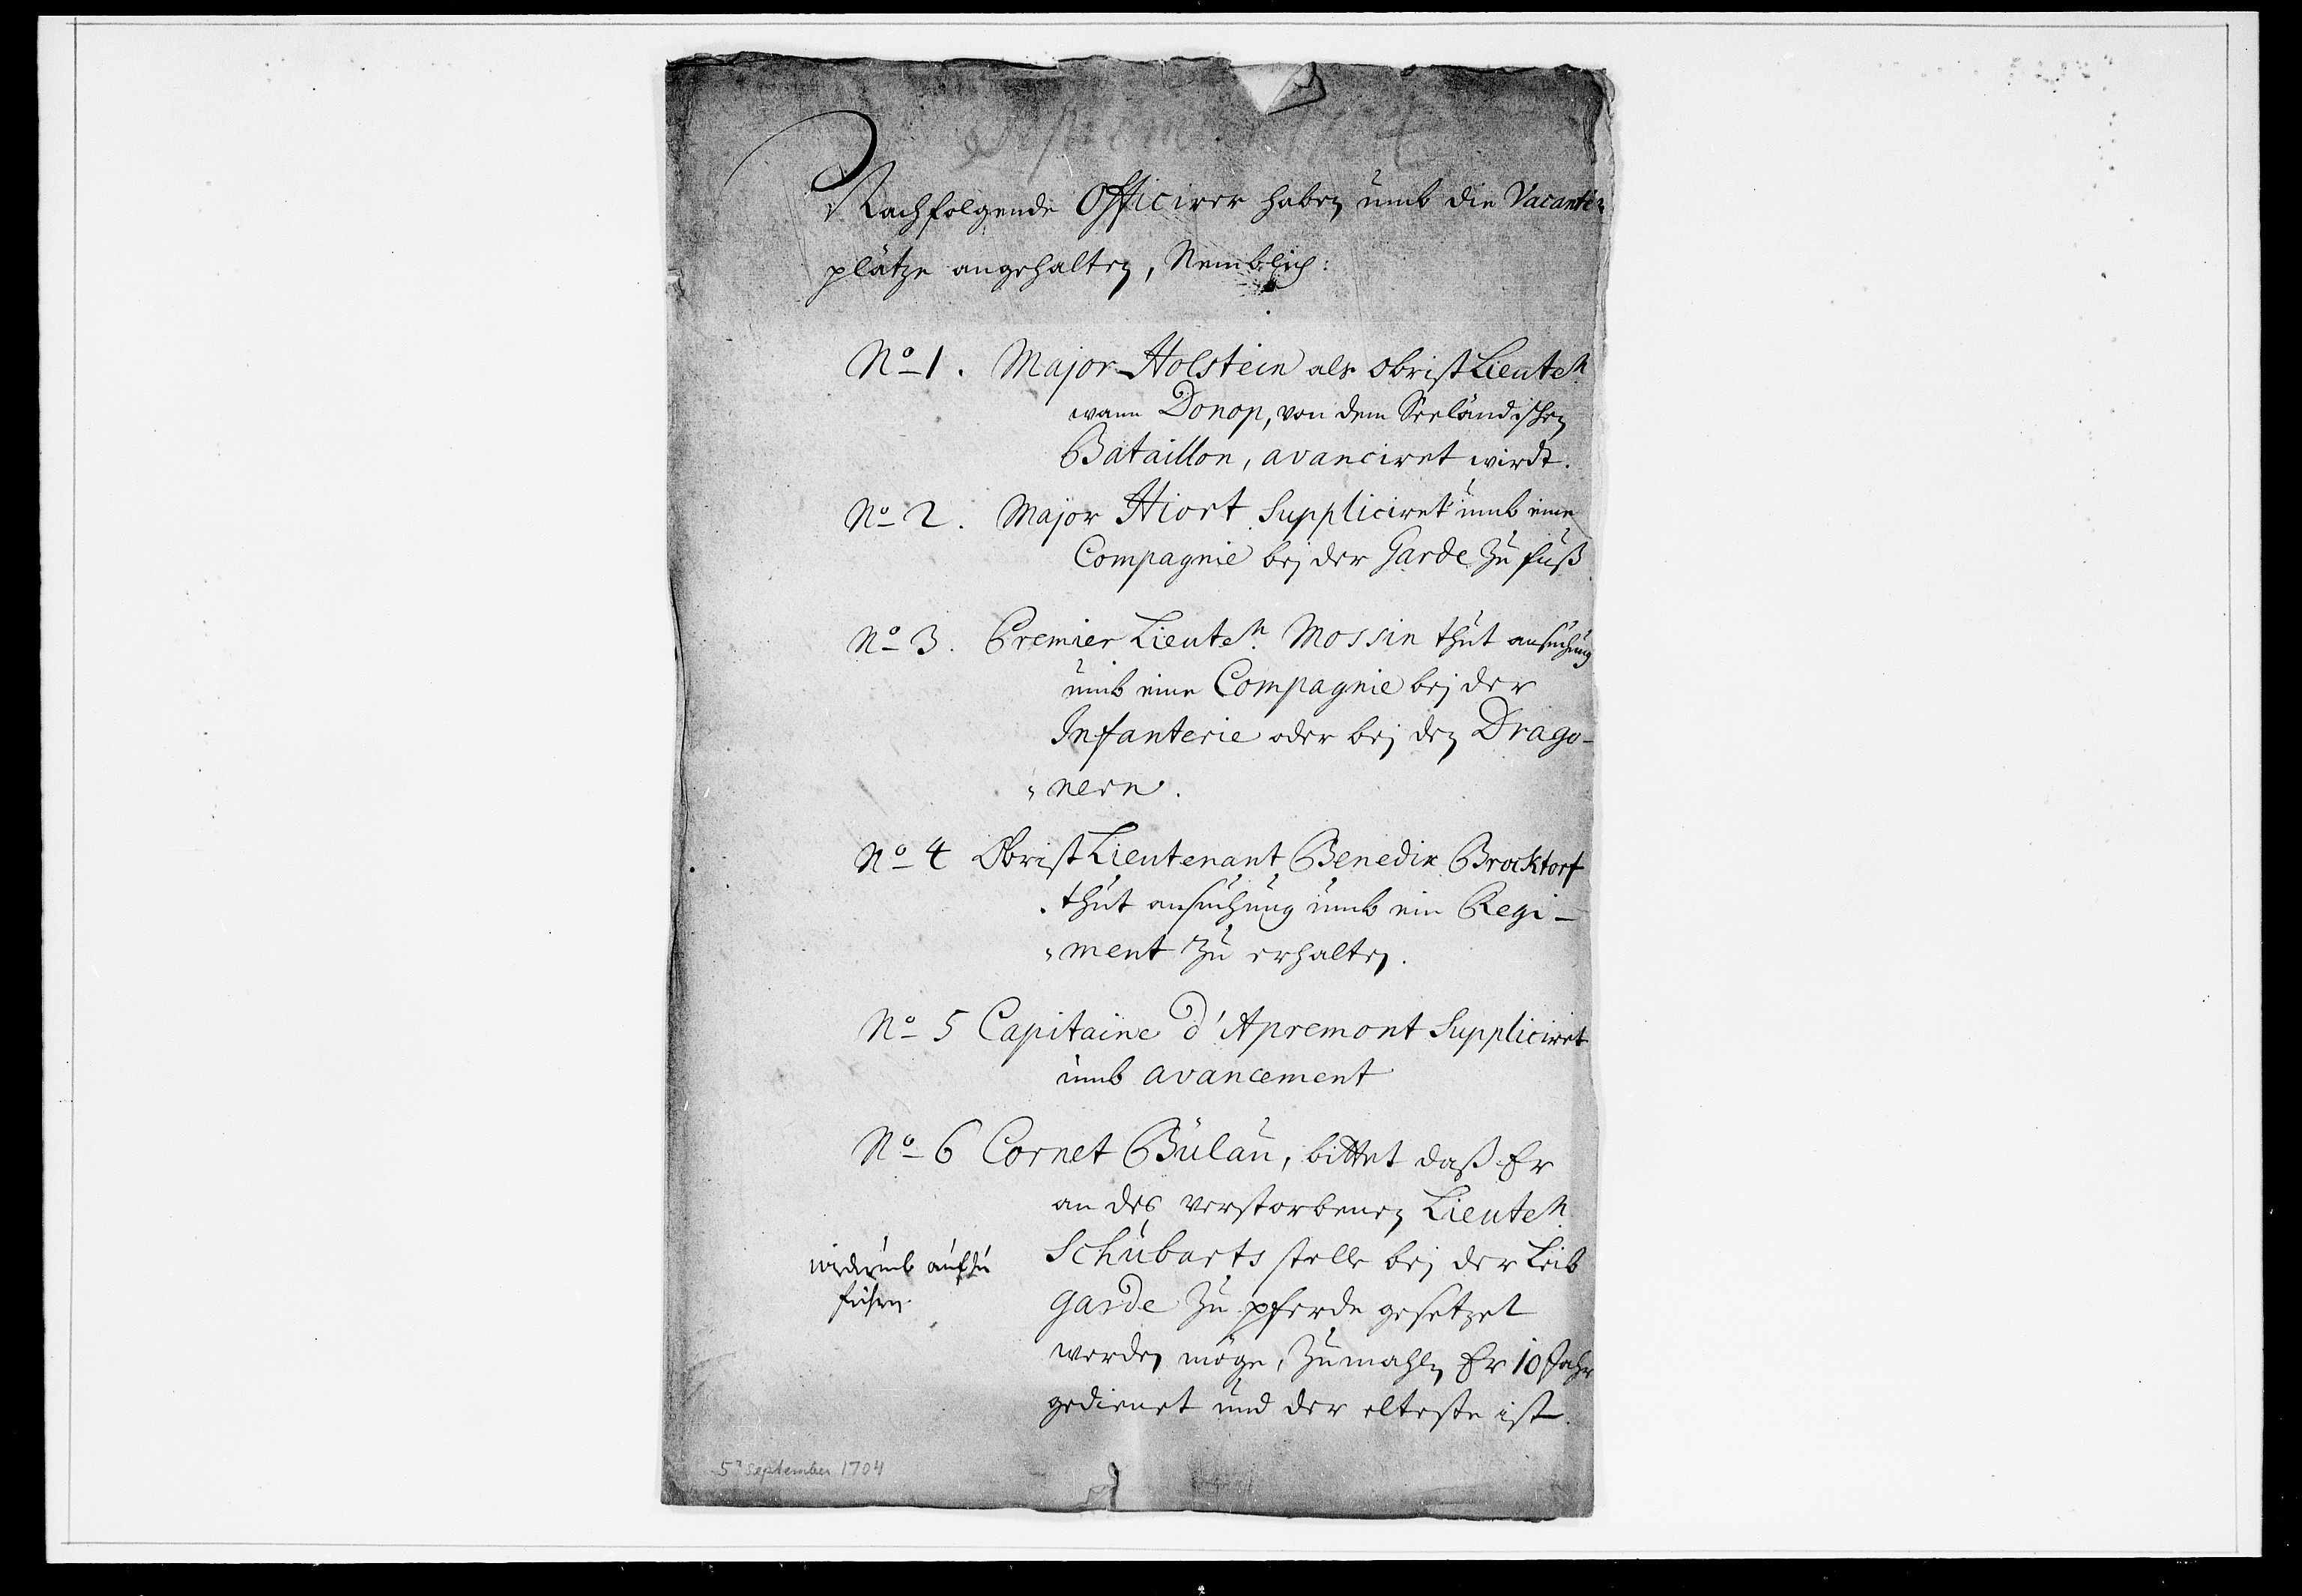 September 1704
Nachfolgende Officirer haben umb die Vacante
plätze angehalten, Nemblich:
No 1. Major Holstein als Obrist Lieuten.
wann Donop, von dem Seeländischen
Bataillon, avanciret wirdt.
No 2. Major Hiort Suppliciret umb eine
Compagnie bej der Garde zu fuß
No 3. Premier Lieuten. Mossin thut ansuchung
umb eine Compagnie bej der
Infanterie oder bej den Drago-
nern.
No 4 Obrist Lieutenant Benedix Brocktorf
thut ansuchung umb ein Regi-
ment zu erhalten.
No 5 Capitaine d'Apremont Suppliciret
umb avancement
No 6 Cornet Bülau, bittet daß Er
an des verstorbenen Lieuten.
Schubarts stelle bej der Leib
Garde zu pferde gesetzet
werden möge, zumahlen Er 10 Jahr
gedienet und der elteste ist.
widerumb aufzu
führen
5 september 1704